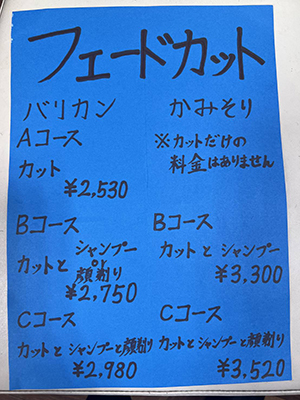 フェードカット
バリカン
Aコース
カット
¥2,530
Bコース
カットと シャンプー or 顔剃り
¥2,750
Cコース
カットとシャンプーと顔剃り
¥2,980
かみそり
※カットだけの
料金はありません
Bコース
カットとシャンプー
¥3,300
Cコース
カットとシャンプーと顔剃り
¥3,520